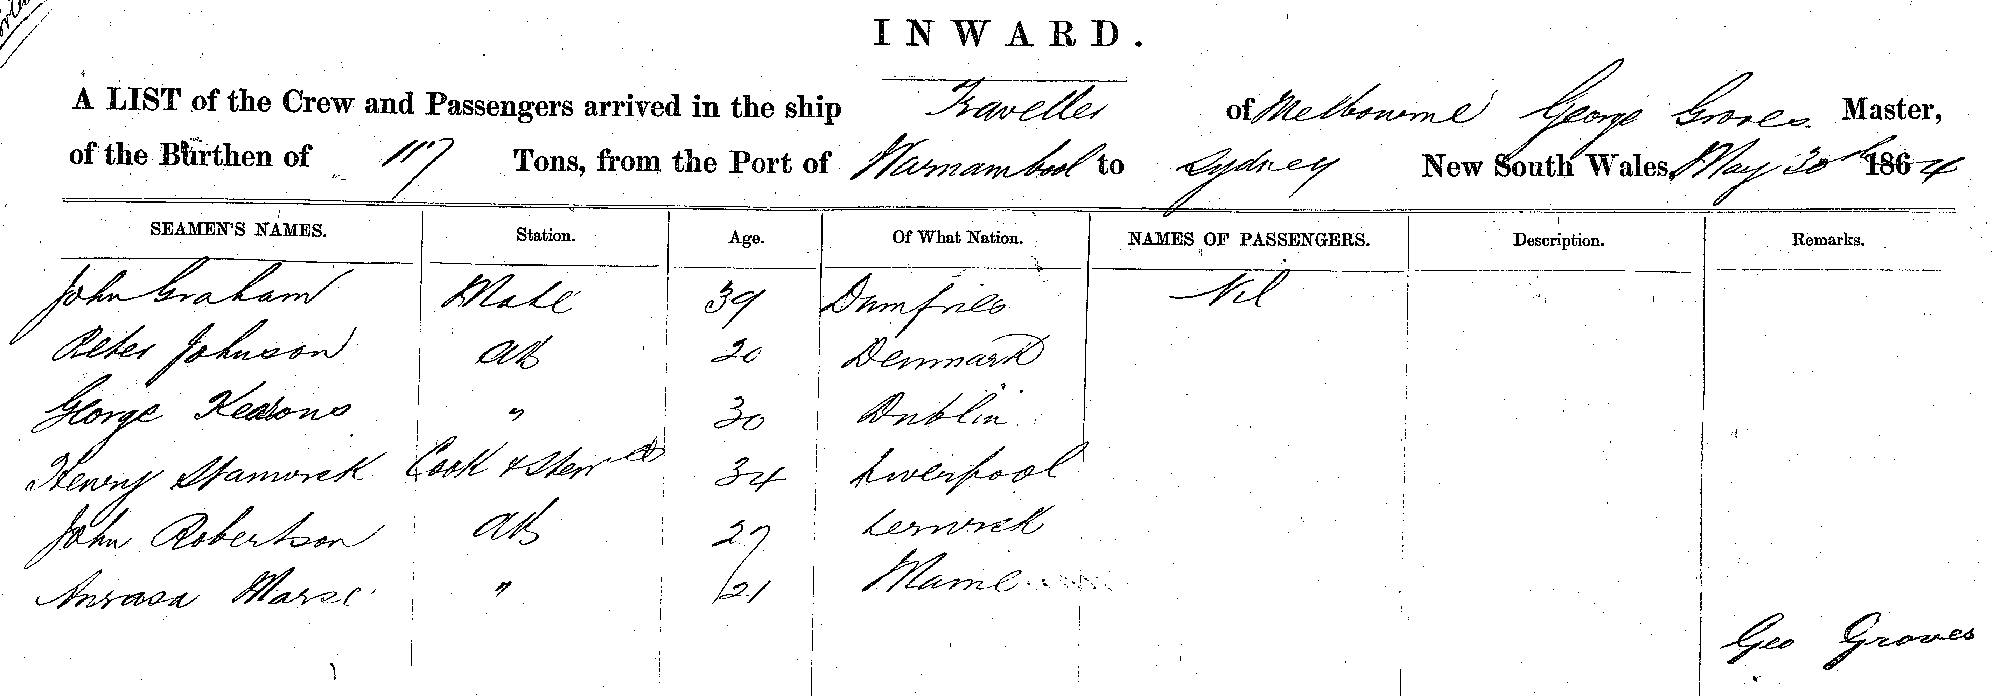 INWARD.
A LIST of the Crew and Passengers arrived in the ship Traveller of Melbourne George Groves Master,
of the Burthen of 117 Tons, from the Port of Warnambool to Sydney New South Wales, May 30th 1864
SEAMEN'S NAMES. Station. Age. Of What Nation. NAMES OF PASSENGERS. Description. Remarks.
John Graham Mate 39 Dumfries Nil
Peter Johnson AB 20 Denmark
George 〃 30 Dublin
Henry Cook & Stewd 34 Liverpool
John Robertson AB 27 Lerwick
〃 21
Geo Groves